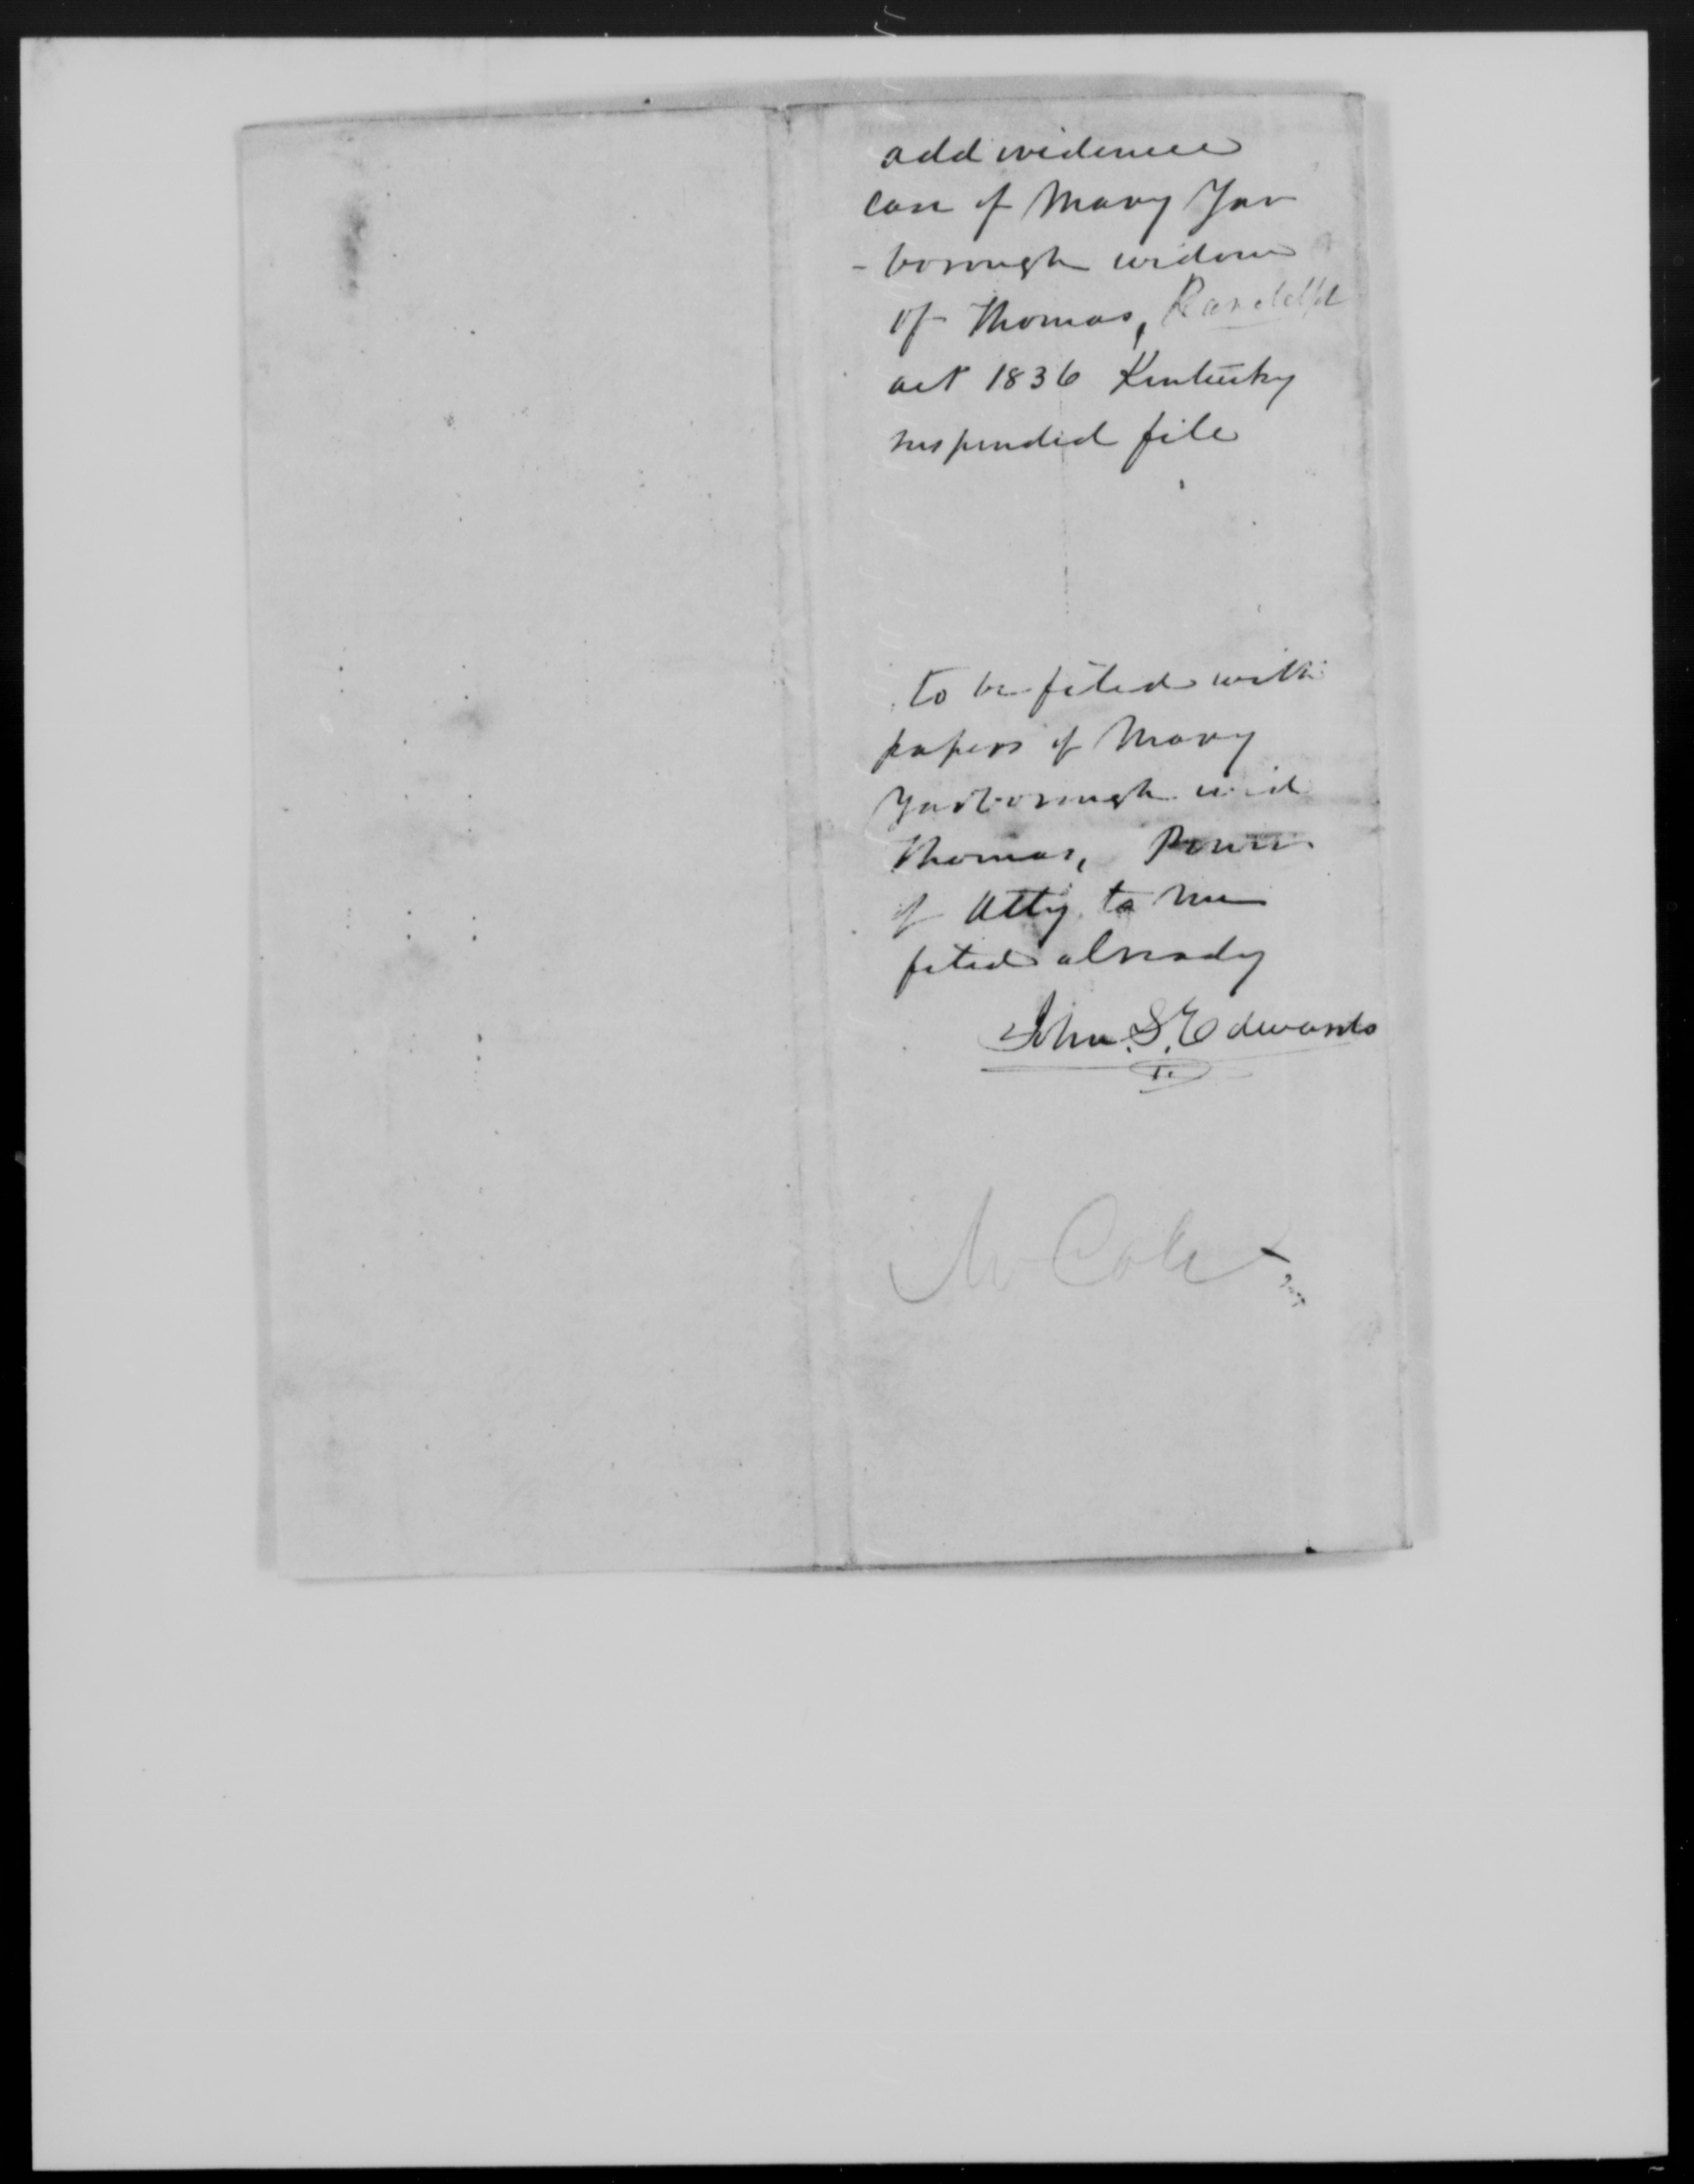 add evidence
case of Mary Yar
- borough widow
of Thomas, Randolph
act 1836 Kentucky
suspended file
to be filed with
papers of Mary
Yarborough wid
Thomas, Power
of Atty to me
filed already
John S. Edwards
Mr Cole